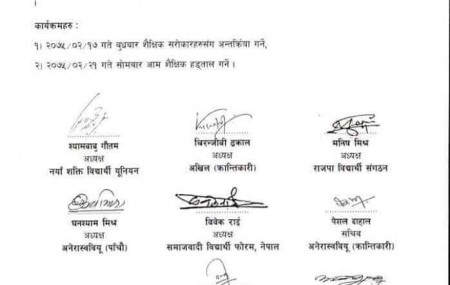 कार्यक्रमहरु :
१) २०७५/०२/१७ गते बुधबार शैक्षिक सरोकारहरुसंग अन्तर्क्रिया गर्ने,
२) २०७५/०२/२१ गते सोमबार आम शैक्षिक हड्ताल गर्ने ।
श्यामबाबु गौतम
अध्यक्ष
नयाँ शक्ति विद्यार्थी यूनियन
चिरन्जीबी ढकाल
अध्यक्ष
अखिल (क्रान्तिकारी)
मनिष मिश्र
अध्यक्ष
राजपा विद्यार्थी संगठन
घनश्याम मिश्र
अध्यक्ष
अनेरास्ववियू (पाँचौ)
विवेक राई
अध्यक्ष
समाजवादी विद्यार्थी फोरम, नेपाल
पेशल दाहाल
सचिब
अनेरास्ववियू (क्रान्तिकारी)